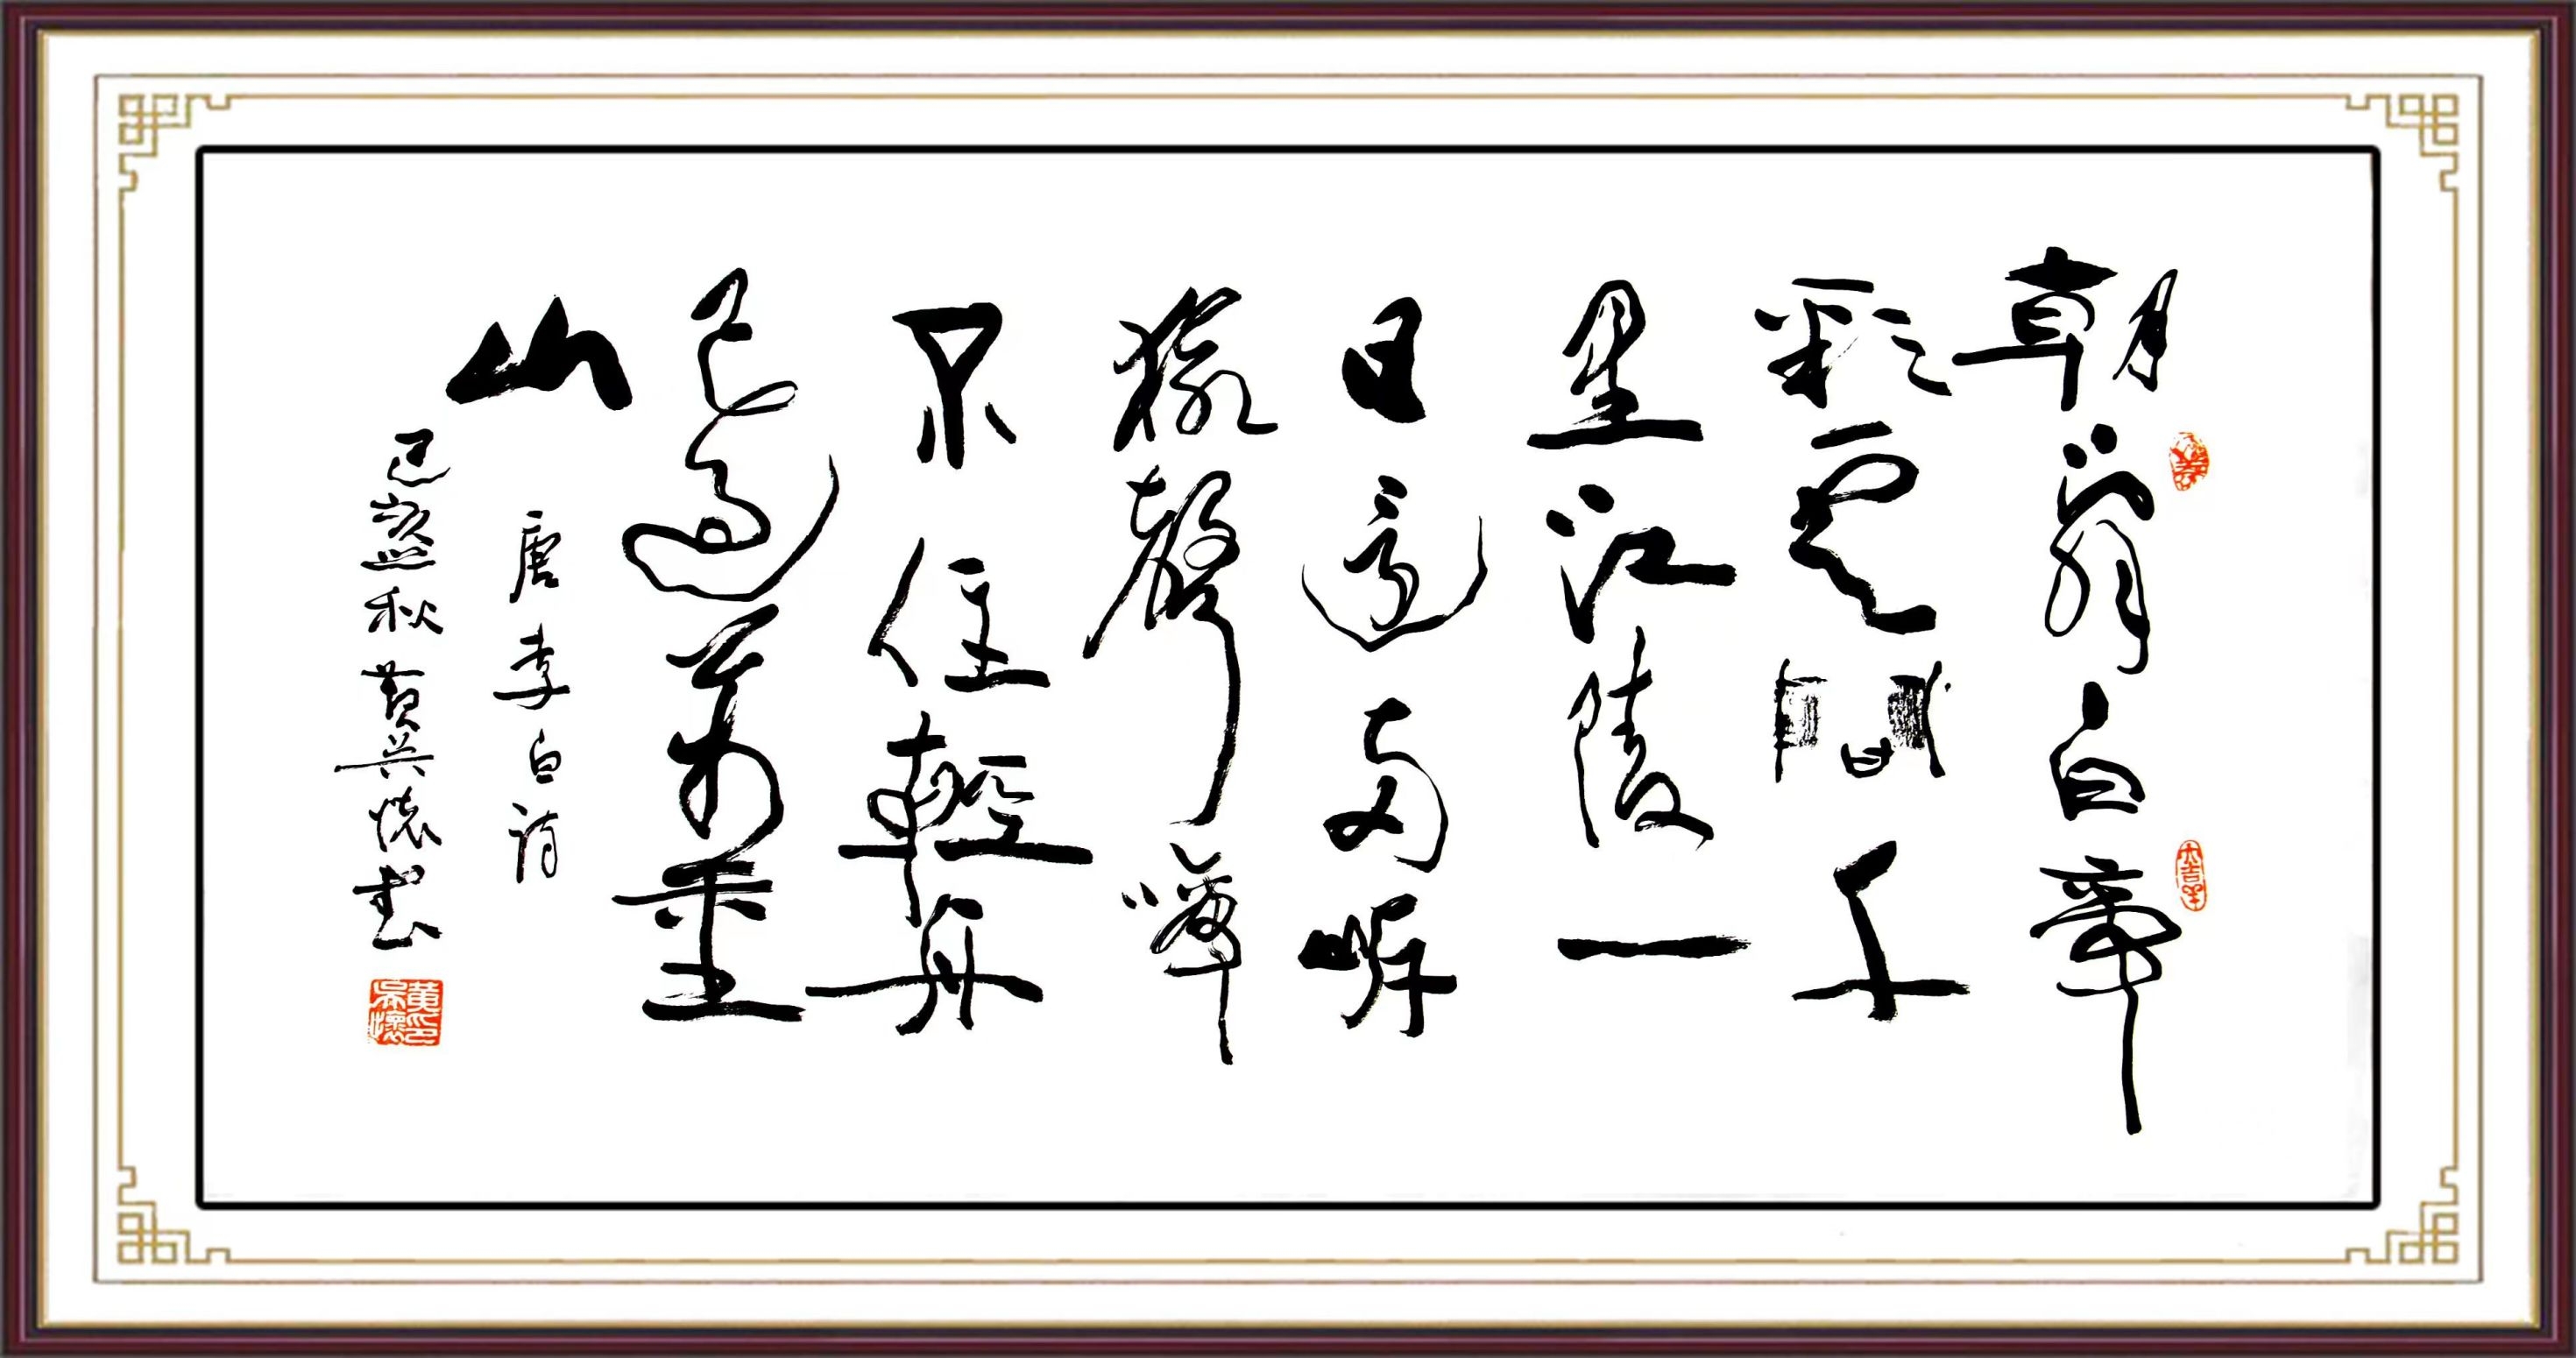 朝辭白帝
彩雲間千
里江陵一
日還兩岸
猿聲啼
不住輕舟
已過萬重
山
唐李白詩
己亥秋黄兴懷书
大吉羊